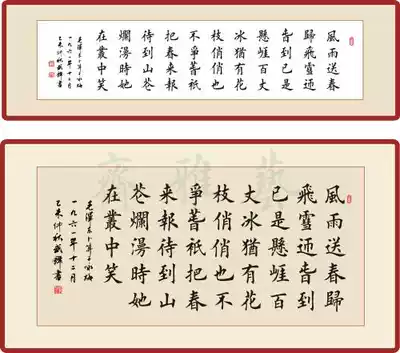 風雨送春
歸飛雪迎
旾到已是
懸崖百丈
冰猶有花
枝俏俏也
不爭旾祇
把春来報
待到山芲
爛漫時她
在叢中笑
毛澤東卜算子咏梅
一九六一年十二月
乙未仲秋
藝雅齋
風雨送春歸
飛雪迎旾到
已是懸崖百
丈冰猶有花
枝俏俏也不
爭旾祇把春
来報待到山
芲爛漫時她
在叢中笑
毛澤東卜算子咏梅
一九六一年十二月
乙未仲秋